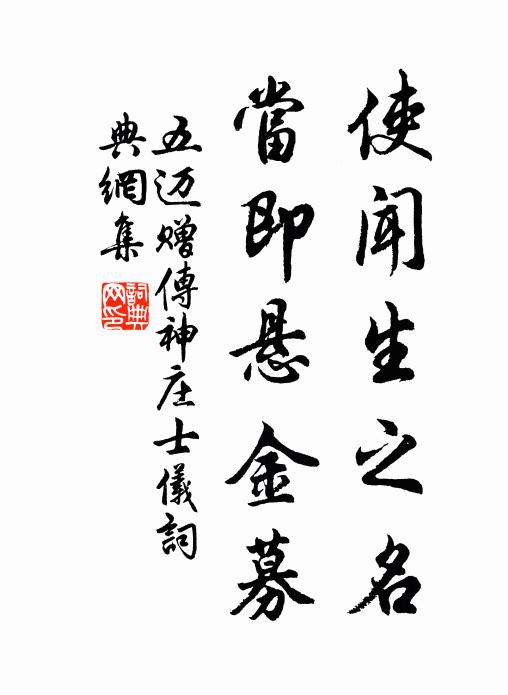 使闻生之名
當即悬金募
五迈赠傅神庄士儀詞
典網集
詞典
网印